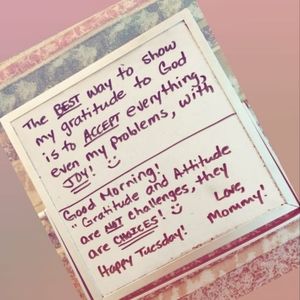 The BEST way to show
my gratitude to God
is to ACCEPT everything,
even my problems, with
JOY! :)
Good Morning!
"Gratitude and Attitude
are NOT challenges, they
are CHOICES! :)
Love,
Happy Tuesday! Mommy!